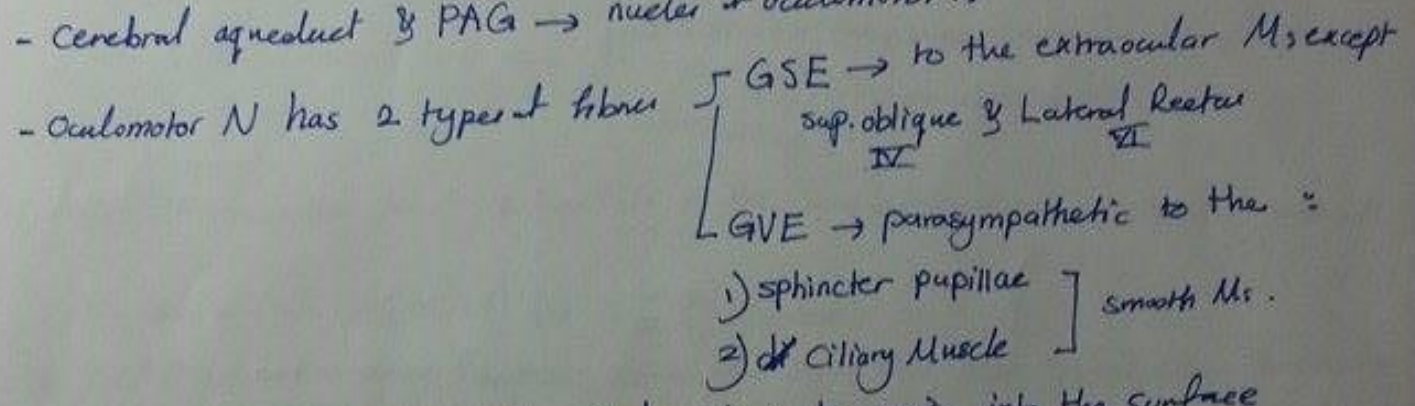 - Cerebral aqueduct & PAG → nuclei
- Oculomotor N has 2 types of fibres
GSE → to the extraocular Ms except
sup. oblique & Lateral Rectus
IV VI
GVE → parasympathetic to the :
1) sphincter pupillae
2) Ciliary Muscle
smooth Ms.
into the surface